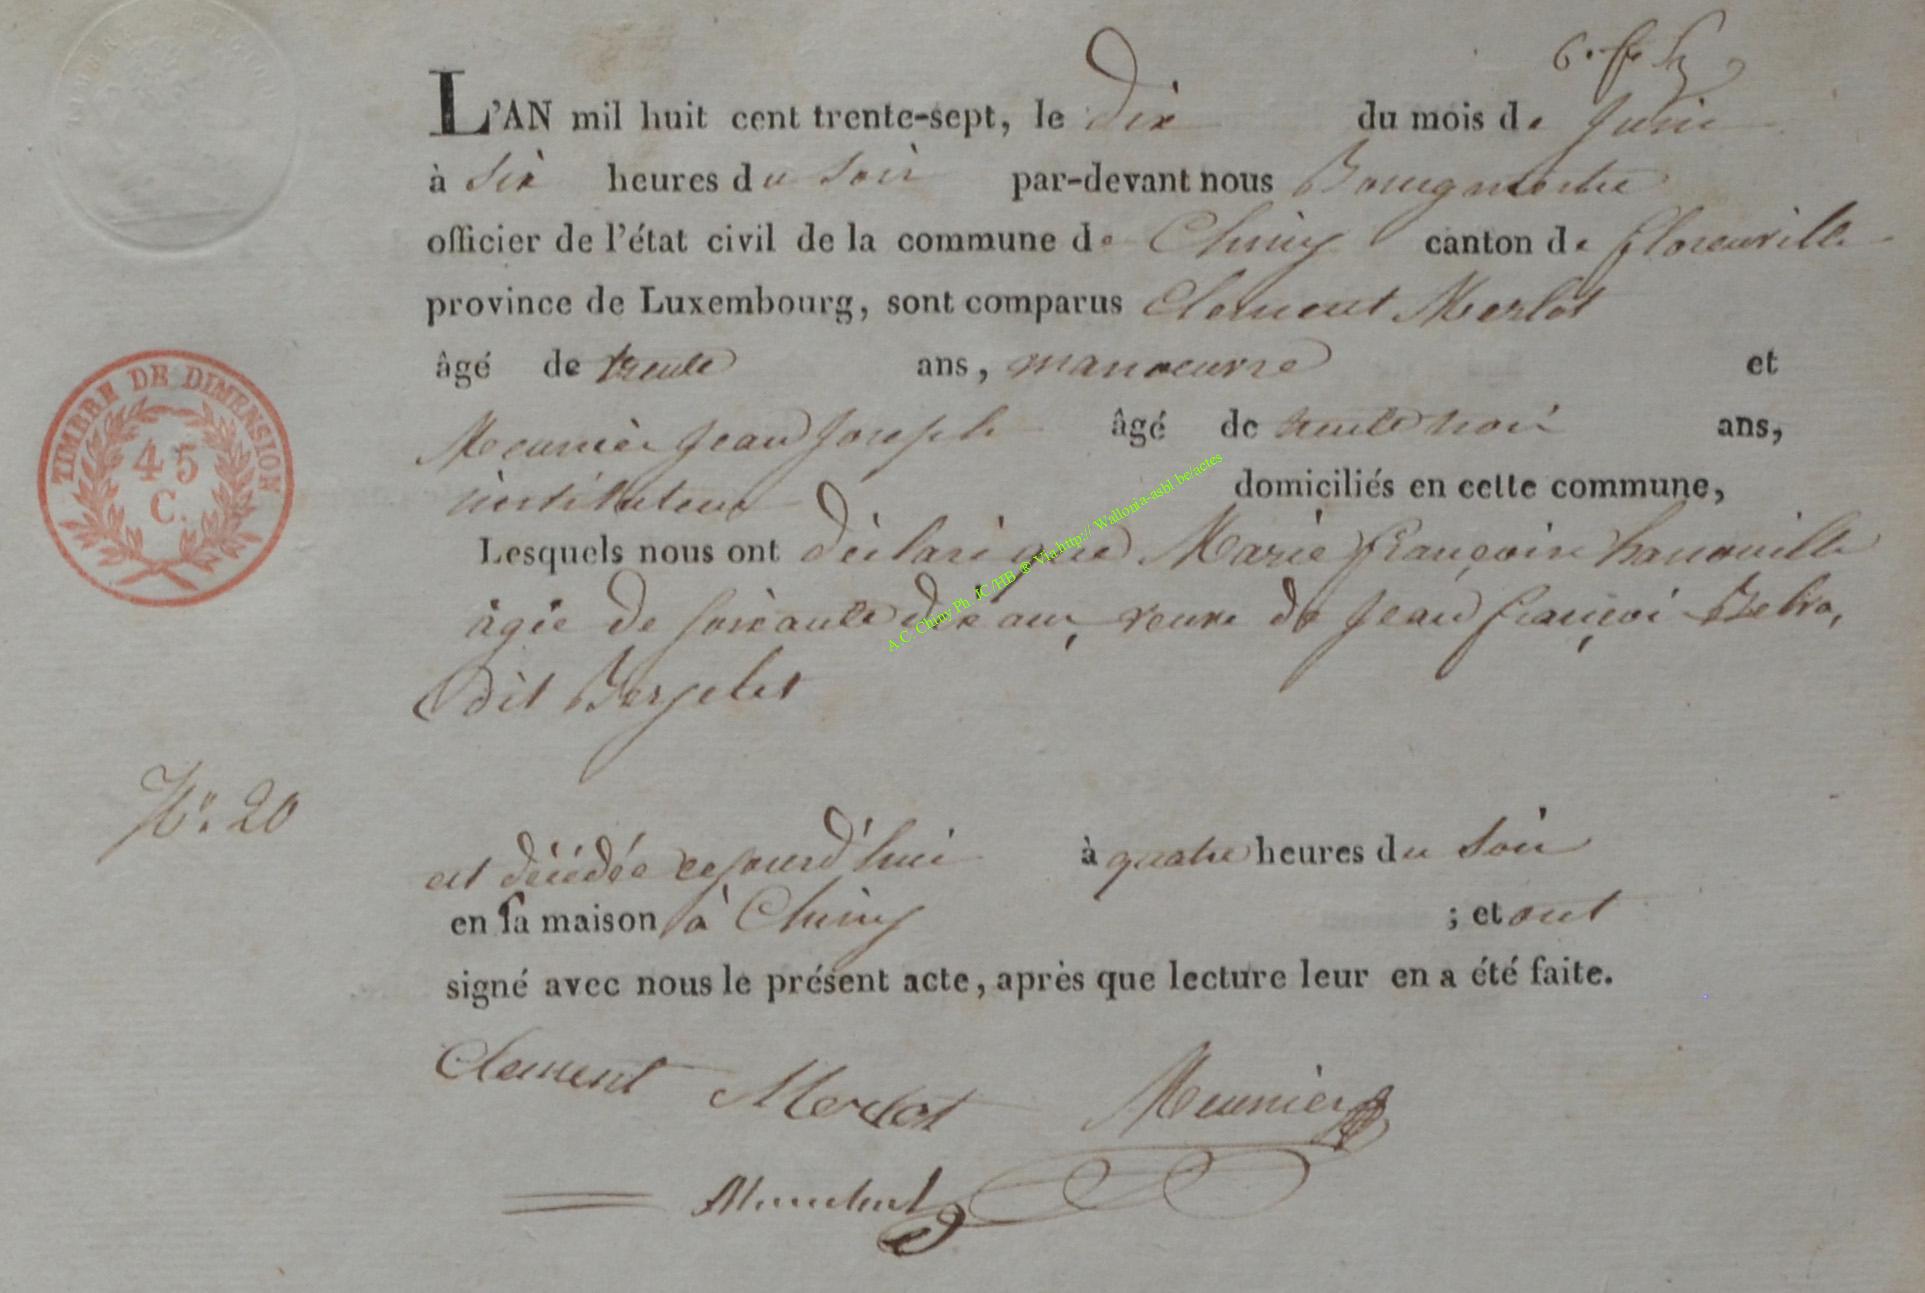 L'AN mil huit cent trente-sept, le dix du mois de Juin
à six heures du soir par-devant nous Bourgmestre
officier de l'état civil de la commune de Chiny canton de florenville
province de Luxembourg, sont comparus Clement Merlot
âgé de trente ans, manoeuvre et
Meunier Jean Joseph âgé de trente trois ans,
instituteur domiciliés en cette commune,
Lesquels nous ont déclaré que Marie françoise hanouille
âgée de soixante dix ans, veuve de Jean françois
dit
est décédée cejourd'hui à quatre heures du soir
en sa maison à Chiny ; et ont
signé avec nous le présent acte, après que lecture leur en a été faite.
Clement Merlot Meunier
N°. 20
TIMBRE DE DIMENSION
45
C.
A.C. Chiny Ph JC/HB ® Via http:// Wallonia-asbl be/actes